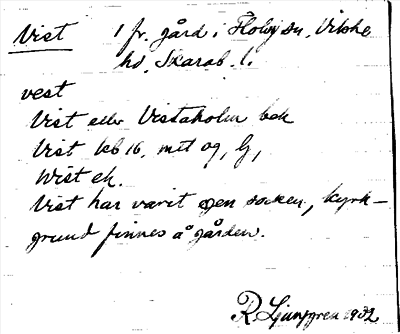 Vist 1 fr. gård i Floby sn, Vilske
hd, Skarab. l.
vest
Vist eller Vistaholm bek
Vist kb 16. mtl og, lj,
Wist ek.
Vist har varit egen socken, kyrk-
grund finnes å gården.
R. Ljunggren 1932